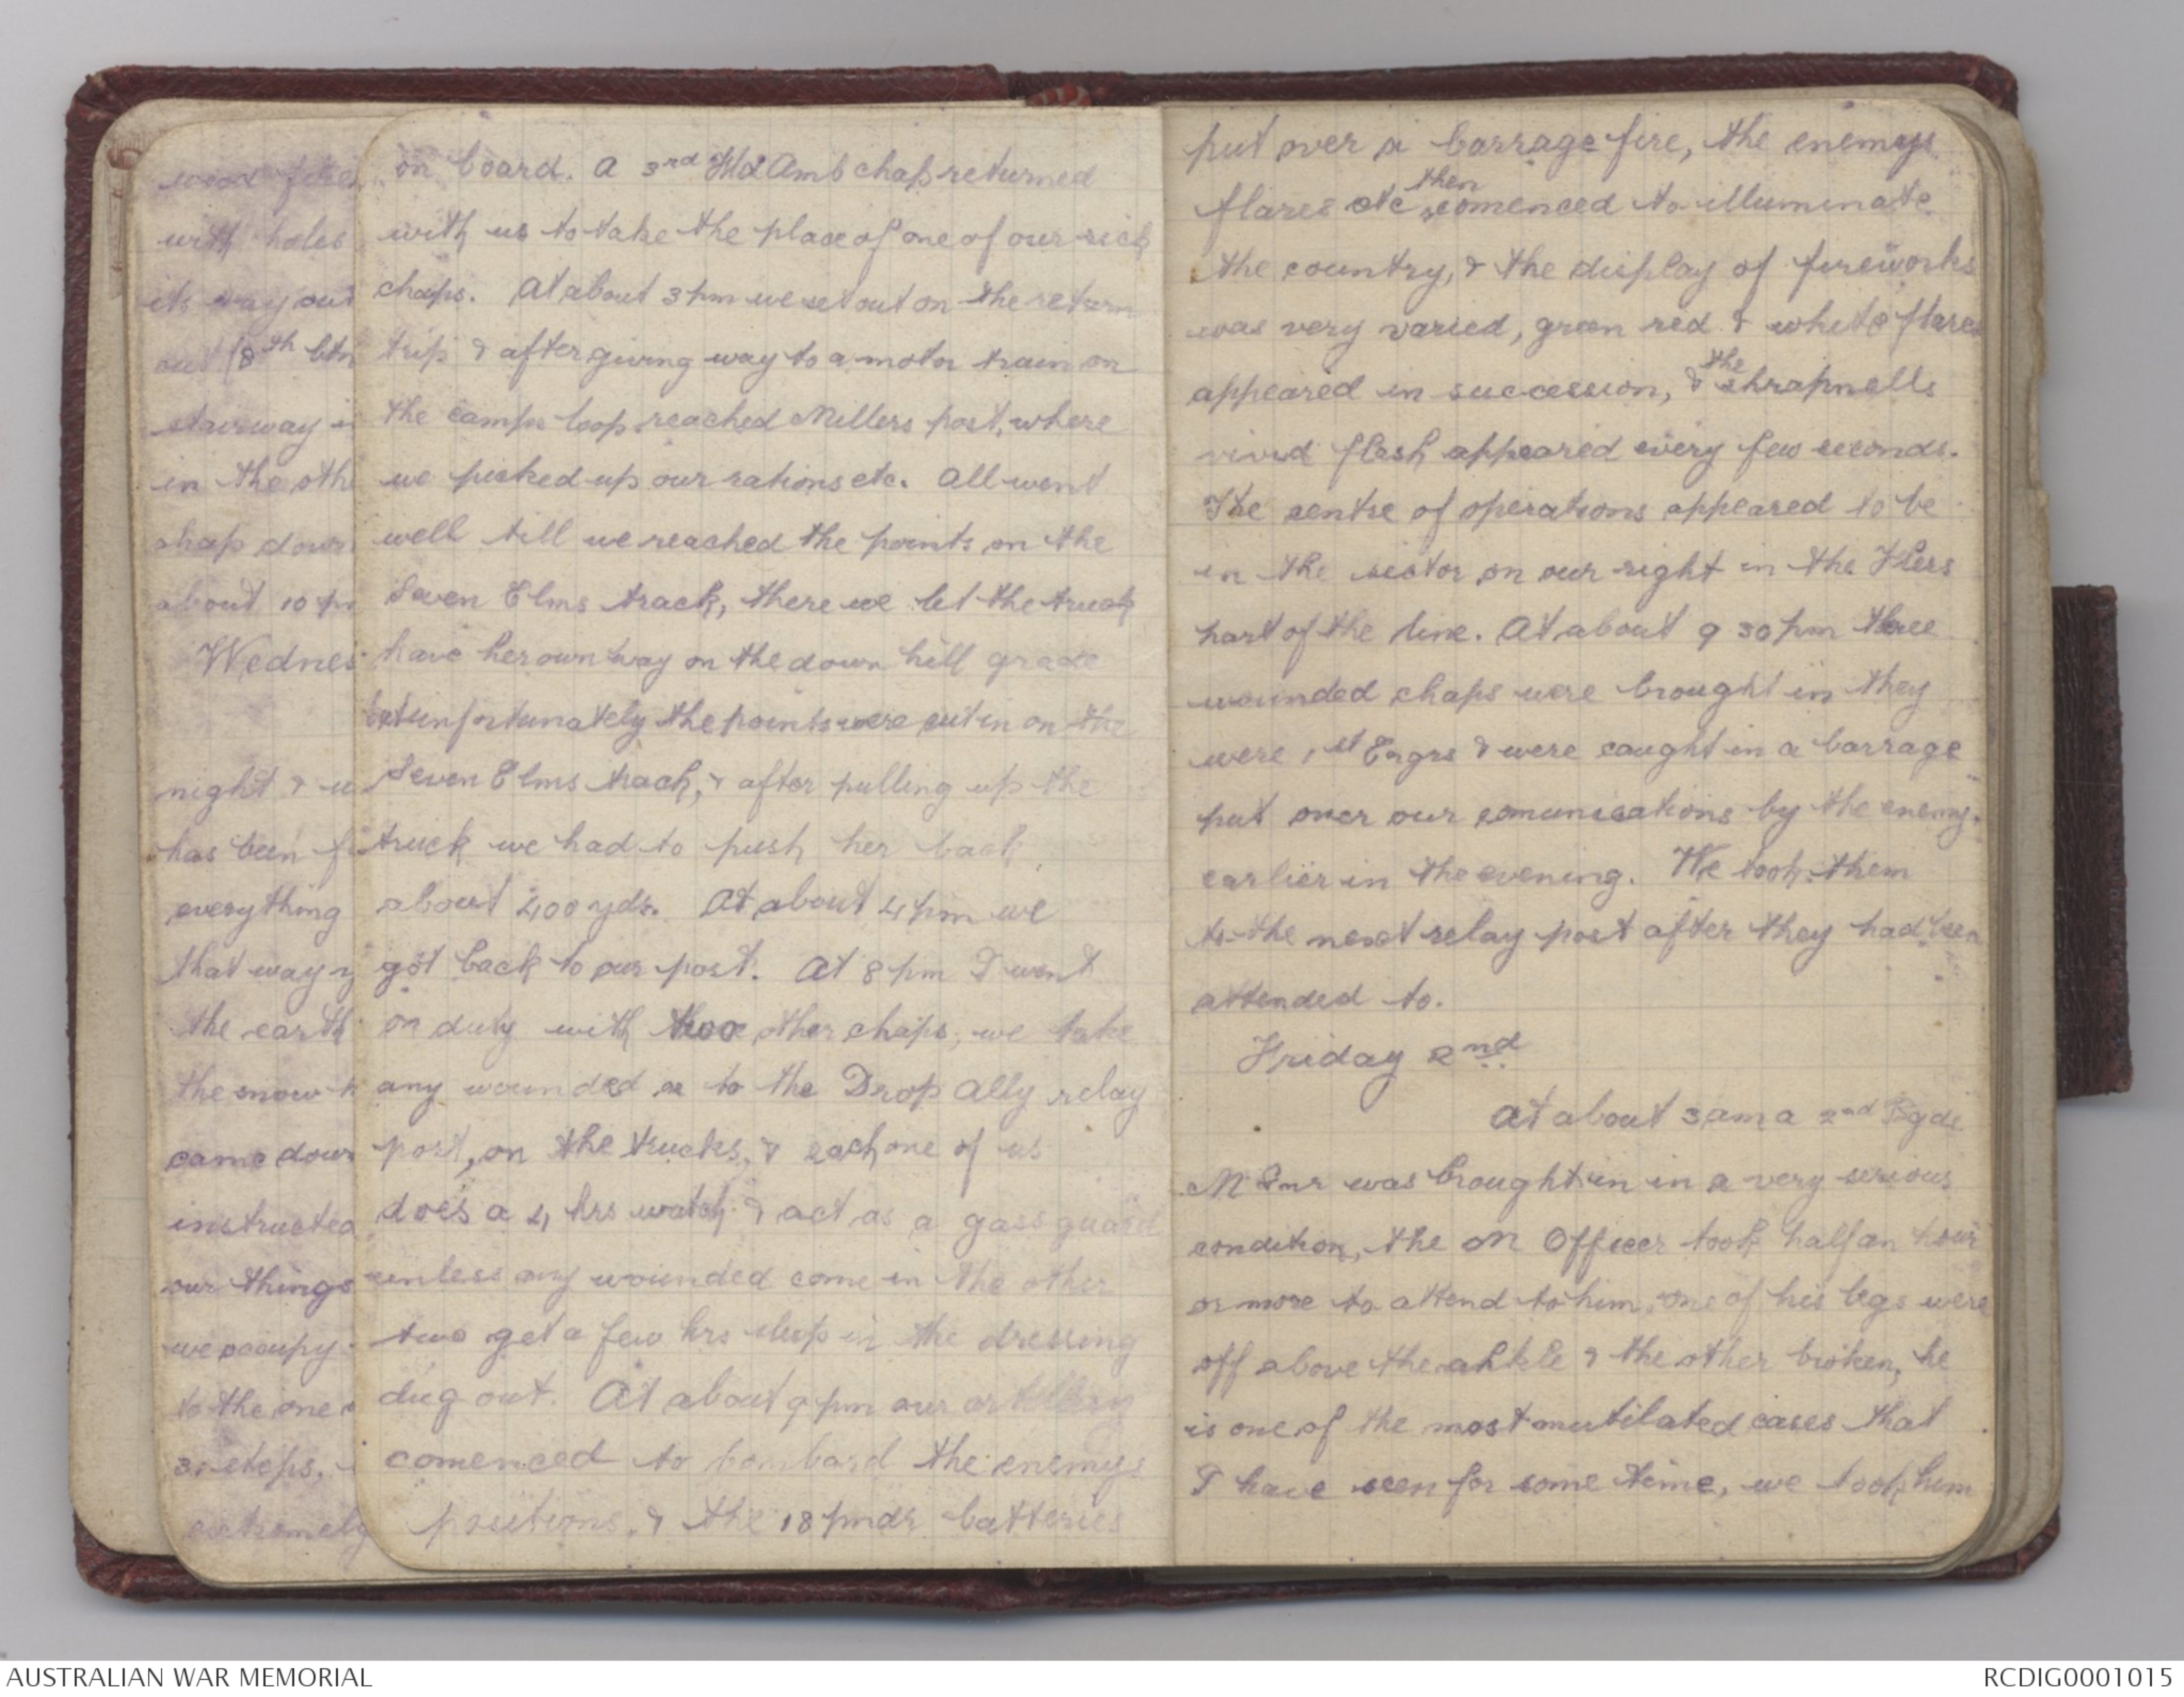 wood fires
with holes
its way out
out (8th btn
stairway i
in the oth
chap down
about 10 pm
Wednes
night & w
has been fi
everything
that way
the earth
the snow
came down
instructed
our things
we occupy
to the one
30 steps,
extremely
on board. A 3rd Fld Amb chap returned
with us to take the place of one of our sick
chaps. At about 3 pm we set out on the return
trip & after giving way to a motor train on
the camps loop reached Millers post, where
we picked up our rations etc. All went
well till we reached the points on the
Seven Elms track, there we let the truck
have her own way on the down hill grade
but unfortunately the points were cut in on the
Seven Elms track, & after pulling up the
truck we had to push her back
about 400 yds. At about 4 pm we
got back to our post. At 8 pm I went
on duty with two other chaps, we take
any wounded to the Drop Ally relay
post, on the trucks, & each one of us
does a 4 hrs watch & act as a gass guard
unless any wounded come in the other
two get a few hrs sleep in the dressing
dug out. At about 9 pm our artillery
comenced to bombard the enemys
positions, & the 18 pndr batteries
put over a barrage fire, the enemys
flares etc then comenced to illuminate
the country, & the display of fireworks
was very varied, green red & white flares
appeared in succession, & the shrapnells
vivid flash appeared every few seconds.
The centre of operations appeared to be
in the sector on our right in the Flers
part of the line. At about 9 30 pm three
wounded chaps were brought in they
were 1st Engrs & were caught in a barrage
put over our comunications by the enemy
earlier in the evening. We took them
to the next relay post after they had been
attended to.
Friday 2nd
At about 3 am a 2nd Bgde
M Gnr was brought in in a very serious
condition, the M Officer took half an hour
or more to attend to him, one of his legs were
off above the ankle & the other broken, he
is one of the most mutilated cases that
I have seen for some time, we took him
AUSTRALIAN WAR MEMORIAL
RCDIG0001015